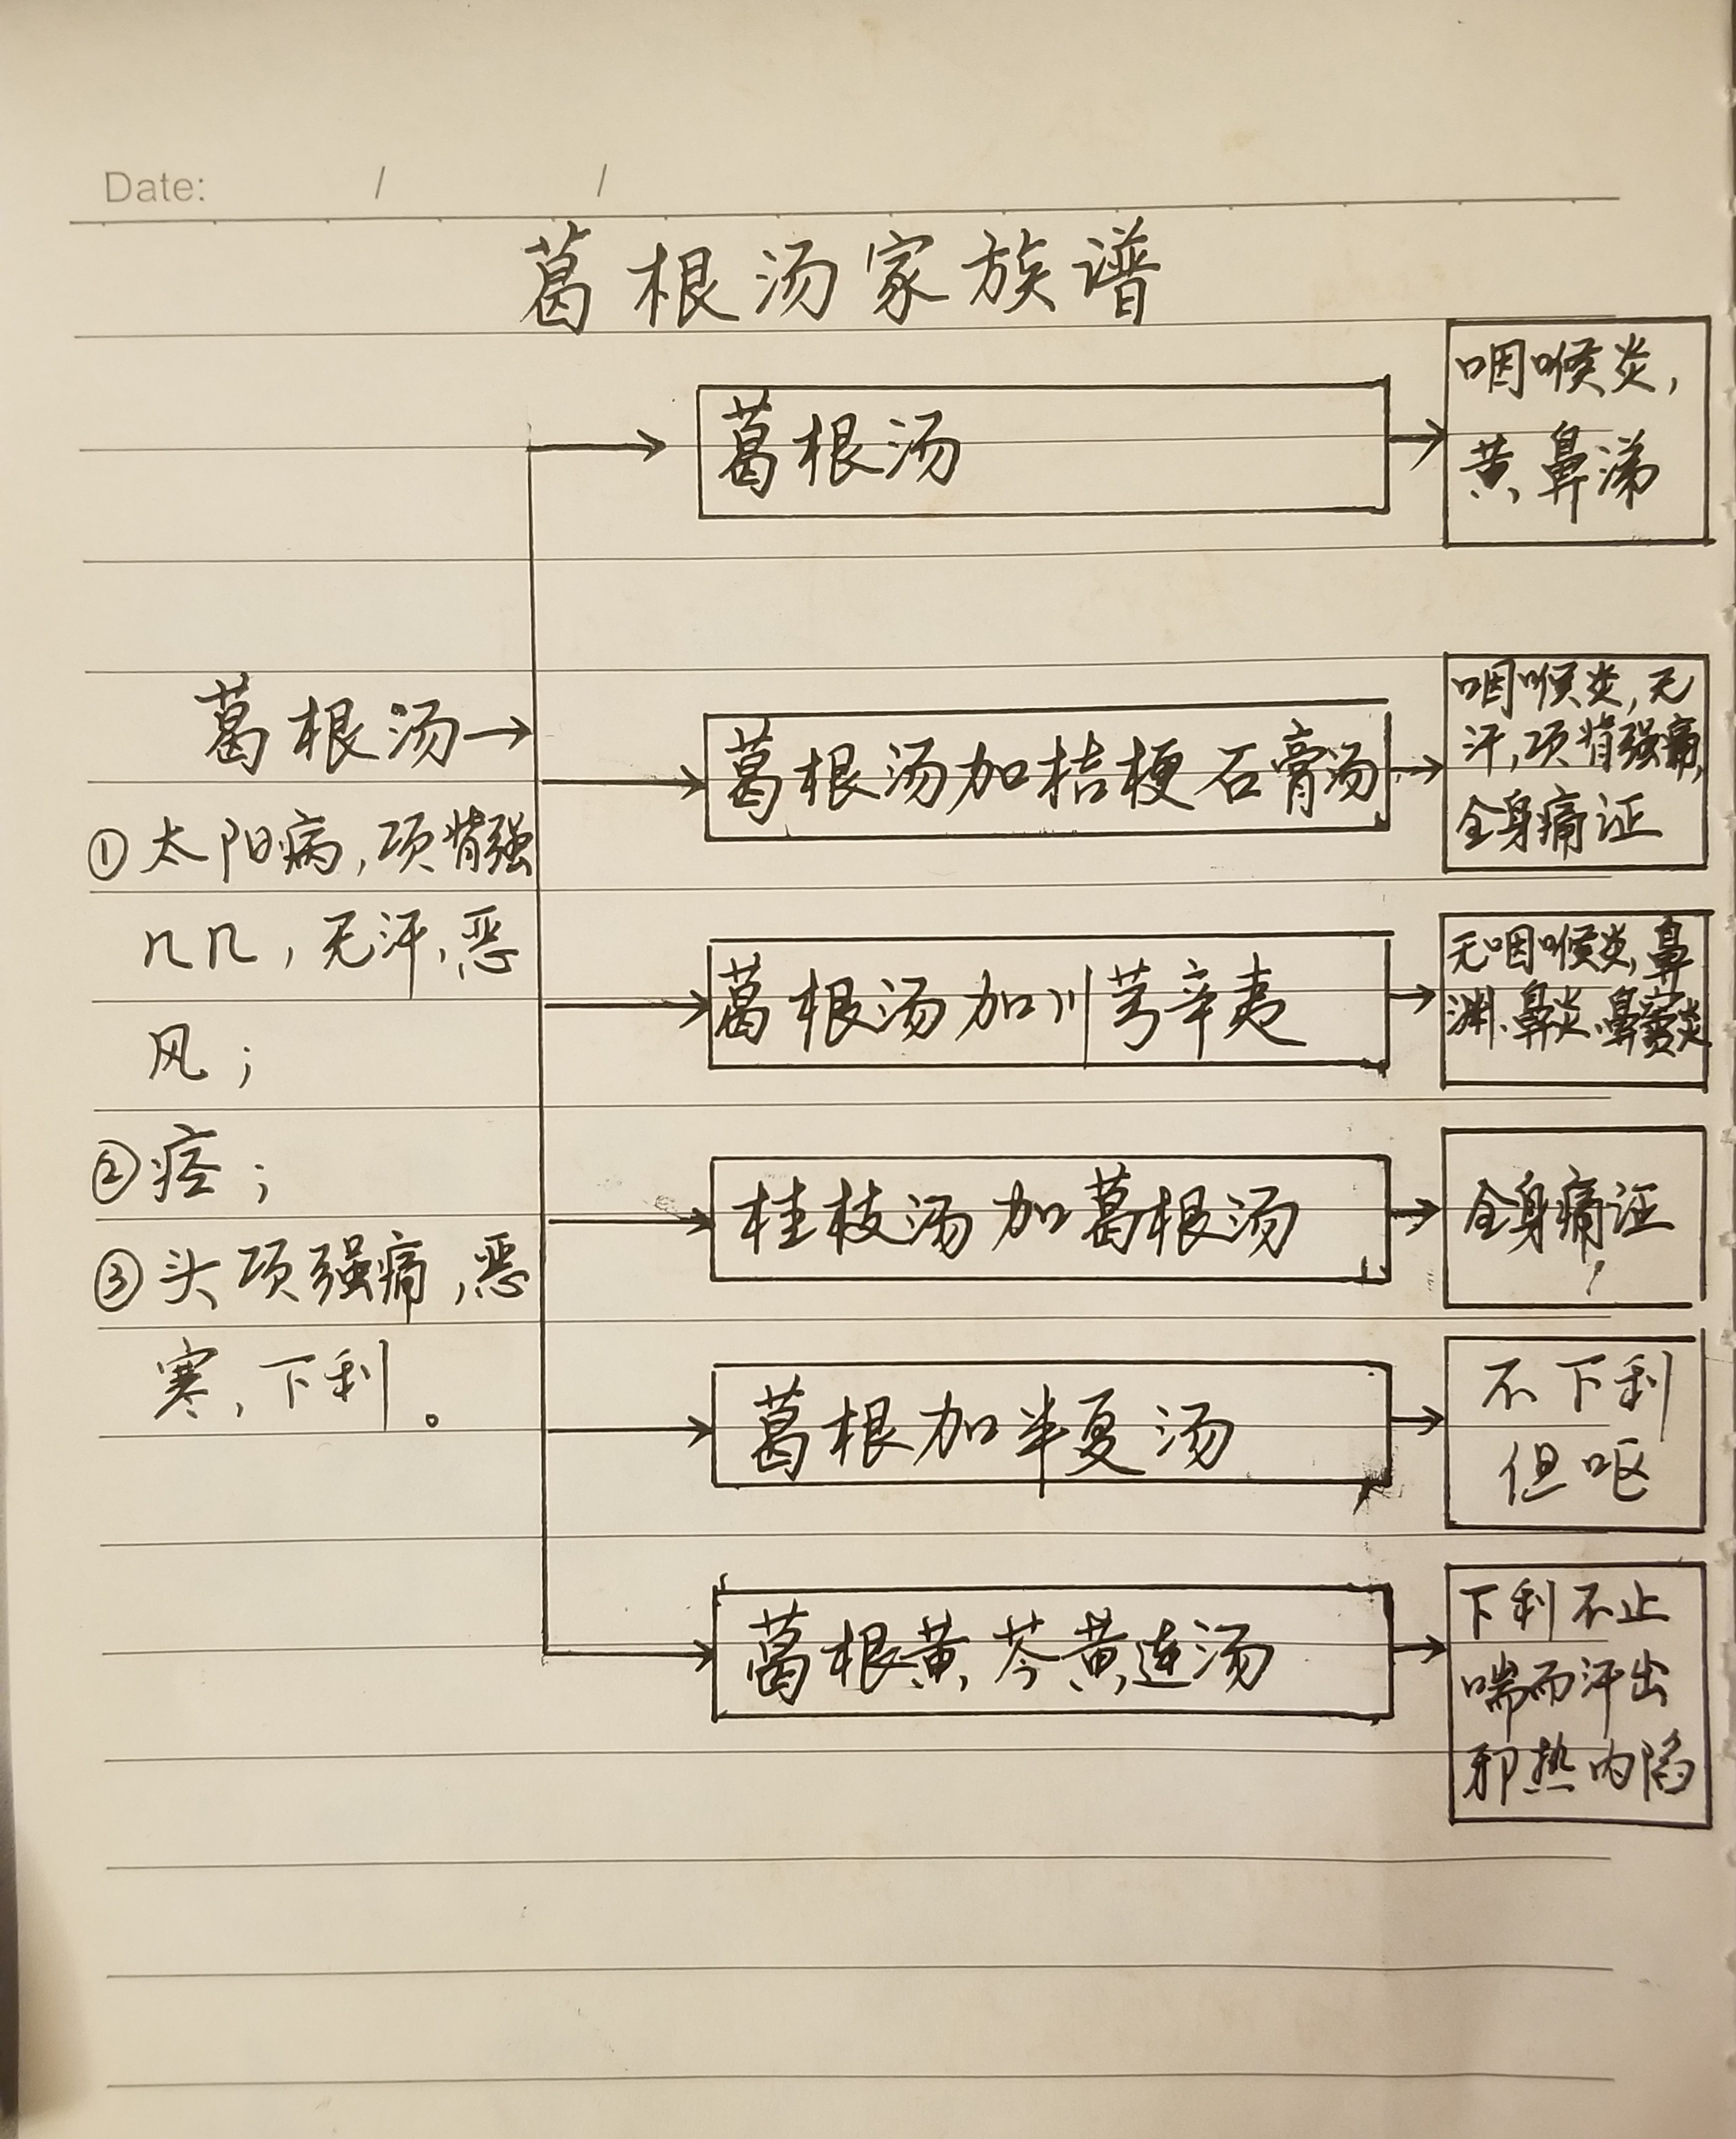 Date: / /
葛根汤家族谱
葛根汤→
①太阳病,项背强
几几,无汗,恶
风;
②痉;
③头项强痛,恶
寒,下利。
葛根汤
咽喉炎,
黄鼻涕
葛根汤加桔梗石膏汤
咽喉炎,无
汗,项背强痛,
全身痛证
葛根汤加川芎辛夷
无咽喉炎,鼻
渊、鼻炎、鼻窦炎
桂枝汤加葛根汤
全身痛证
葛根加半夏汤
不下利
但呕
葛根黄芩黄连汤
下利不止
喘而汗出
邪热内陷